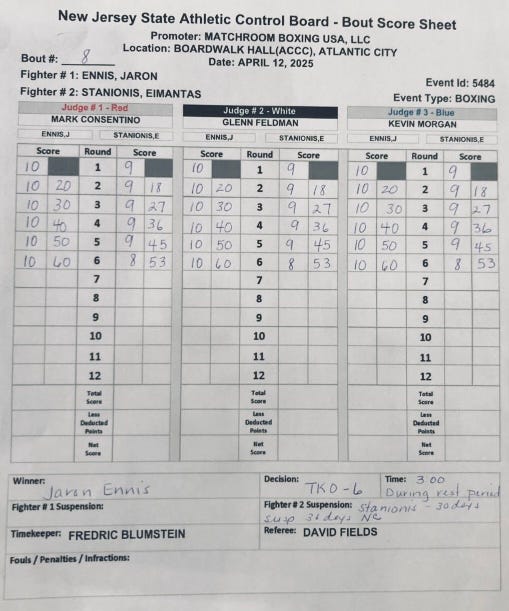 New Jersey State Athletic Control Board - Bout Score Sheet
Promoter: MATCHROOM BOXING USA, LLC
Location: BOARDWALK HALL(ACCC), ATLANTIC CITY
Bout #: 8 Date: APRIL 12, 2025
Fighter # 1: ENNIS, JARON Event Id: 5484
Fighter # 2: STANIONIS, EIMANTAS Event Type: BOXING
Judge # 1 - Red Judge # 2 - White Judge # 3 - Blue
MARK CONSENTINO GLENN FELDMAN KEVIN MORGAN
ENNIS,J STANIONIS,E ENNIS,J STANIONIS,E ENNIS,J STANIONIS,E
Score Round Score Score Round Score Score Round Score
10 1 9 10 1 9 10 1 9
10 20 2 9 18 10 20 2 9 18 10 20 2 9 18
10 30 3 9 27 10 30 3 9 27 10 30 3 9 27
10 40 4 9 36 10 40 4 9 36 10 40 4 9 36
10 50 5 9 45 10 50 5 9 45 10 50 5 9 45
10 60 6 8 53 10 60 6 8 53 10 60 6 8 53
7 7 7
8 8 8
9 9 9
10 10 10
11 11 11
12 12 12
Total Score Total Score Total Score
Less Deducted Points Less Deducted Points Less Deducted Points
Net Score Net Score Net Score
Winner: Jaron Ennis Decision: TKO-6 Time: 3 00
During rest period
Fighter # 1 Suspension: Fighter # 2 Suspension: Stanionis - 30 days
susp days NC
Timekeeper: FREDRIC BLUMSTEIN Referee: DAVID FIELDS
Fouls / Penalties / Infractions: